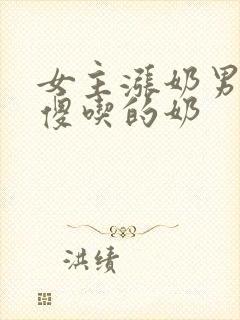 女主漲奶男
傻喫的奶
洪绩